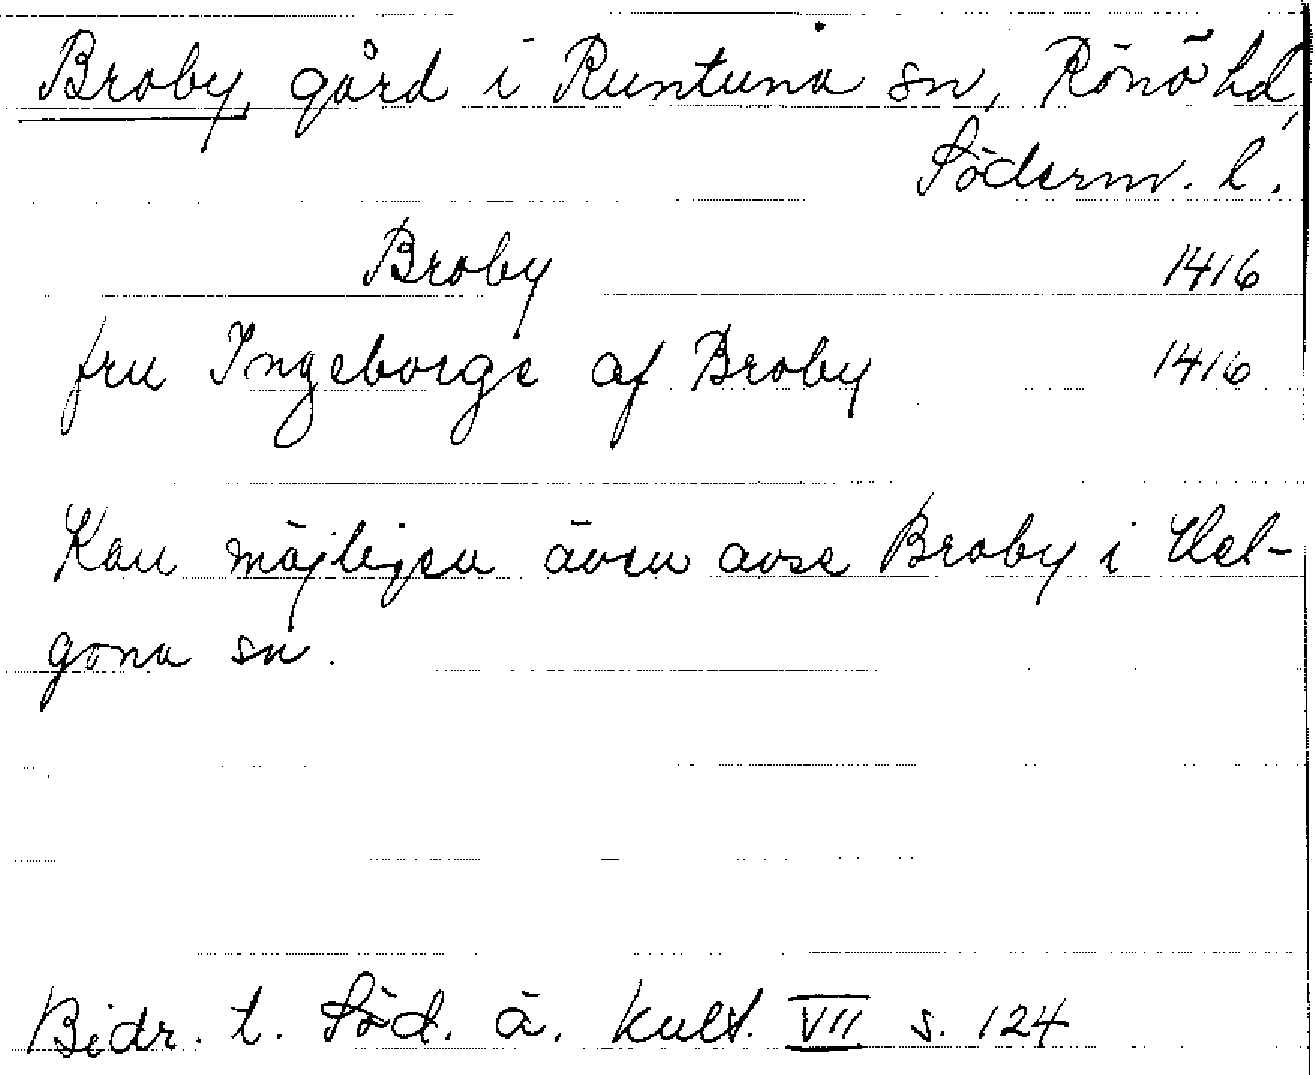 Broby, gård i Runtuna sn, Rönö hd,
Söderm. l.
Broby 1416
fru Ingeborge af Broby 1416
Kan möjligen även avse Broby i Hel-
gona sn.
Bidr. t. Söd. ä. kult. VII s. 124